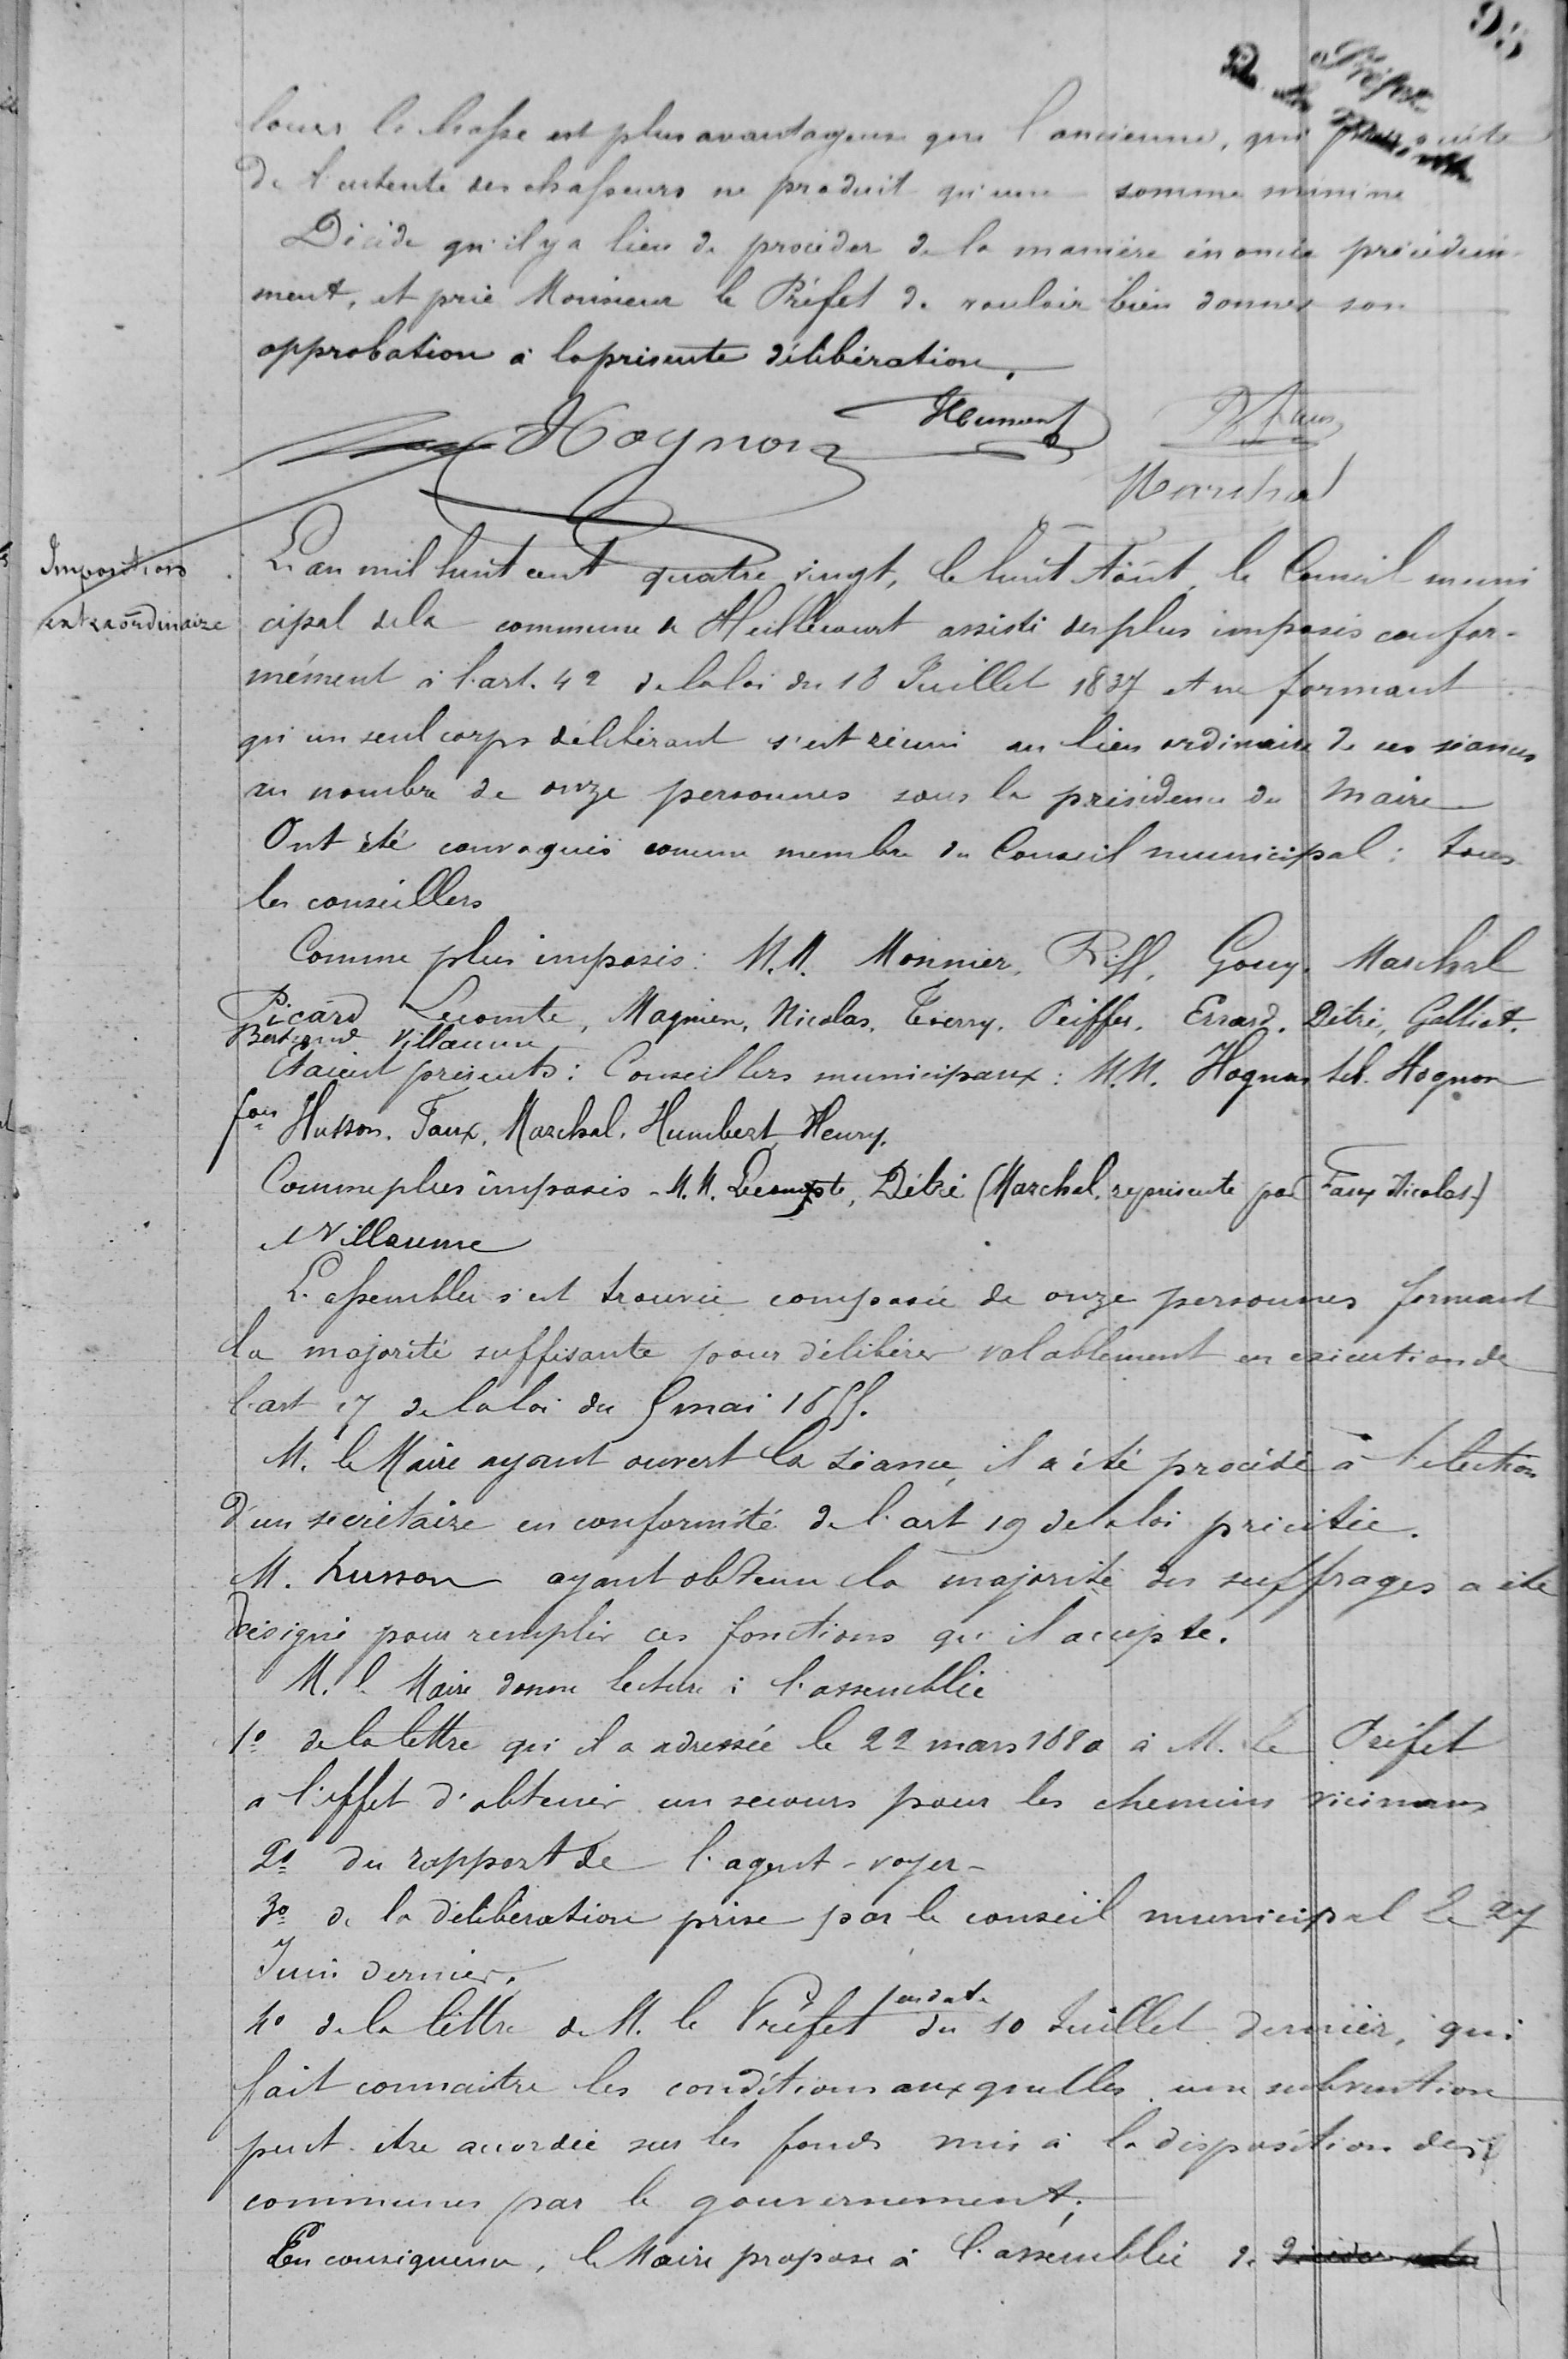 louer la chasse est plus avantageux que l'ancienne, qui par suite
de l'entente des chasseurs ne produit qu'une somme minime
Décide qu'il y a lieu de procéder de la manière énoncée précédem-
ment, et prie Monsieur le Préfet de vouloir bien donner son
approbation à la présente délibération.
Hognon Marchal
Impositions
extraordinaire
L'an mil huit cent quatre vingt, le huit Août le Conseil muni
cipal de la commune de Heillecourt assisté des plus imposés confor-
mément à l'art. 42 de la loi du 18 Juillet 1837 et ne formant
qu'un seul corps délibérant s'est réuni au lieu ordinaire de ses séances
au nombre de onze personnes sous la présidence du Maire
Ont été convoqués comme membre du Conseil municipal : tous
les conseillers
Comme plus imposés : M.M. Monnier, Riff, Gouy, Marchal
Picard Lecomte, Magnien, Nicolas, Thierry, Peiffer, Errard, Détré, Galliot.
Bertrand Villaume
Etaient présents : Conseillers municipaux : M.M. Hognon Seb. Hognon
fois Husson. Faux, Marchal, Humbert Henry.
Comme plus imposés - M.M. Lecomte, Détré (Marchal, représenté par Faux Nicolas)
et Villaume
L'assemblée s'est trouvée composée de onze personnes formant
la majorité suffisante pour délibérer valablement en exécution de
l'art 17 de la loi du 5 mai 1855.
M. le Maire ayant ouvert la séance, il a été procédé à l'élection
d'un secrétaire en conformité de l'art 19 de la loi précitée.
M. Husson ayant obtenu la majorité des suffrages a été
désigné pour remplir ces fonctions qu'il accepte.
M. le Maire donne lecture à l'assemblée
1º de la lettre qu'il a adressée le 22 mars 1880 à M. le Préfet
a l'effet d'obtenir un secours pour les chemins vicinaux
2º du rapport de l'agent-voyer-
3º de la délibération prise par le conseil municipal le 27
Juin dernier.
4º de la lettre de M. le Préfet en date du 10 Juillet dernier, qui
fait connaitre les conditions auxquelles une subvention
peut être accordée sur les fonds mis à la disposition des
communes par le gouvernement;
En conséquence, le Maire propose à l'assemblée de